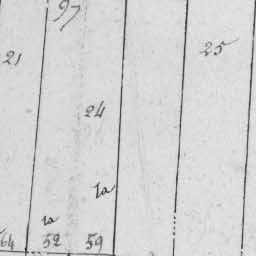 97
21 25
24
1a
1a
64 52 59